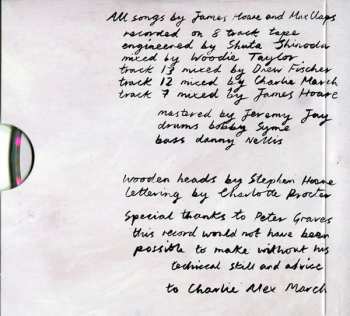 All songs by James Hoare and Max Claps
recorded on 8 track tape
engineered by Shuta Shinoda
mixed by Woodie Taylor
track 13 mixed by Drew Fischer
track 12 mixed by Charlie March
track 7 mixed by James Hoare
mastered by Jeremy Jay
drums bobby Syme
bass danny Nellis
Wooden heads by Stephen Hoare
lettering by Charlotte Procter
Special thanks to Peter Graves
this record would not have been
possible to make without his
technical skill and advice
to Charlie Alex March